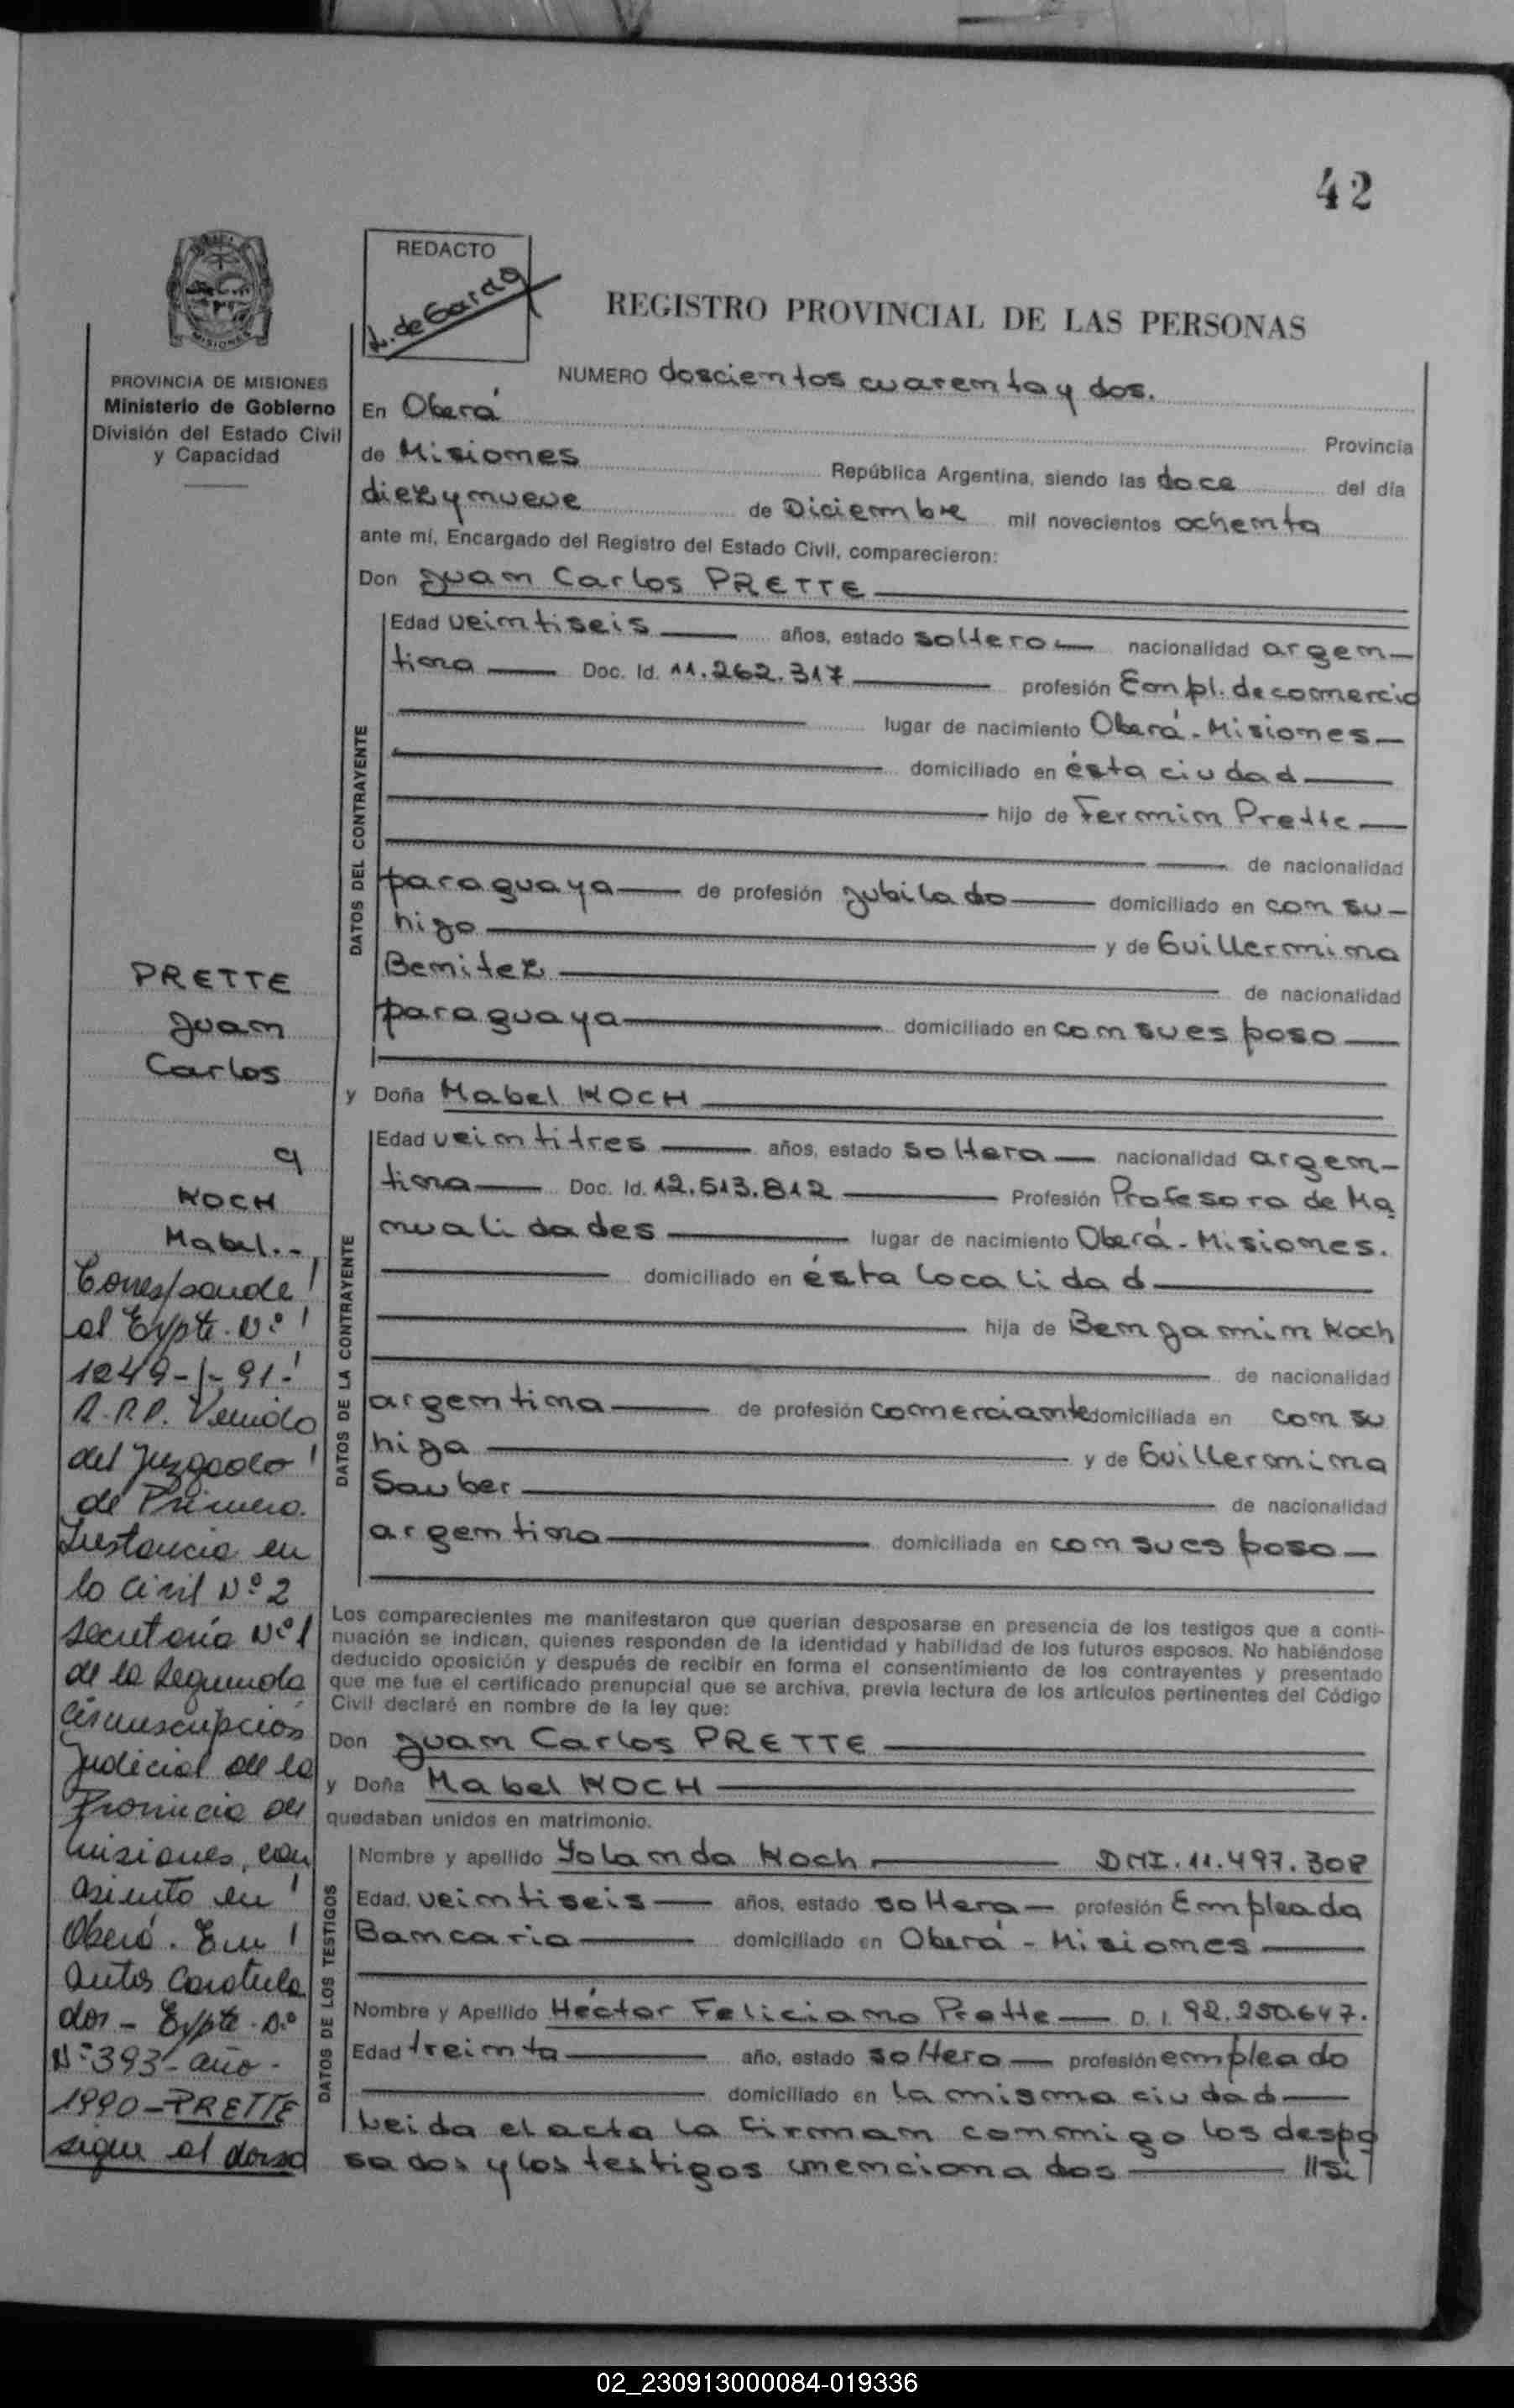 42
REDACTO
L. de Garda
REGISTRO PROVINCIAL DE LAS PERSONAS
MISIONES
PROVINCIA DE MISIONES
Ministerio de Gobierno
División del Estado Civil
y Capacidad
NUMERO doscientos cuarenta y dos.
En Oberá Provincia
de Misiones República Argentina, siendo las doce del día
diez y nueve de Diciembre mil novecientos ochenta
ante mí, Encargado del Registro del Estado Civil, comparecieron:
Don Juan Carlos PRETTE
DATOS DEL CONTRAYENTE
Edad veintiseis años, estado soltero nacionalidad argen-
tina Doc. Id. 11.262.317 profesión Empl. de comercio
lugar de nacimiento Oberá - Misiones
domiciliado en ésta ciudad
hijo de Fermin Prette
de nacionalidad
paraguaya de profesión jubilado domiciliado en con su
hijo y de Guillermina
Benitez de nacionalidad
paraguaya domiciliado en con su esposo
y Doña Mabel KOCH
DATOS DE LA CONTRAYENTE
Edad veintitres años, estado soltera nacionalidad argen-
tina Doc. Id. 12.513.812 Profesión Profesora de Ma
nualidades lugar de nacimiento Oberá - Misiones.
domiciliado en ésta localidad
hija de Benjamin Koch
de nacionalidad
argentina de profesión comerciante domiciliada en con su
hija y de Guillermina
Sauber de nacionalidad
argentina domiciliada en con su esposo
Los comparecientes me manifestaron que querían desposarse en presencia de los testigos que a conti-
nuación se indican, quienes responden de la identidad y habilidad de los futuros esposos. No habiéndose
deducido oposición y después de recibir en forma el consentimiento de los contrayentes y presentado
que me fue el certificado prenupcial que se archiva, previa lectura de los artículos pertinentes del Código
Civil declaré en nombre de la ley que:
Don Juan Carlos PRETTE
y Doña Mabel KOCH
quedaban unidos en matrimonio.
DATOS DE LOS TESTIGOS
Nombre y apellido Yolanda Koch DNI. 11.497.308
Edad, veintiseis años, estado soltera profesión Empleada
Bancaria domiciliado en Oberá - Misiones
Nombre y Apellido Héctor Feliciano Prette D. I. 92.250.647.
Edad treinta año, estado soltero profesión empleado
domiciliado en la misma ciudad
Leida el acta la firman conmigo los despo
sados y los testigos mencionados //Si
PRETTE
Juan
Carlos
q
KOCH
Mabel.-
Corresponde
al Expte. Nº
1249-1-91-
R.P.P. Venido
del Juzgado
de Primera
Instancia en
lo Civil Nº 2
Secretaría Nº 1
de la Segunda
Circunscripción
Judicial de la
Provincia de
Misiones, con
asiento en
Oberá. En
autos Caratula
dos - Expte. Nº
Nº 393- año -
1990 - PRETTE
sigue al dorso
02_230913000084-019336